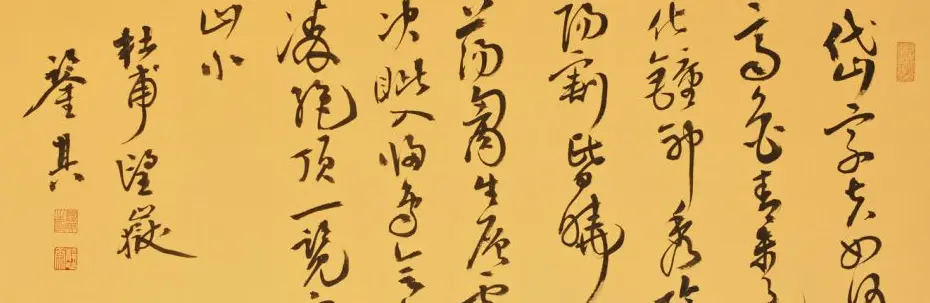 岱宗夫如何
齊魯青未了
化鐘神秀陰
陽割昏曉
蕩胸生層雲
決眥入歸鳥會
凌絶頂一覽衆
山小
杜甫望嶽
其